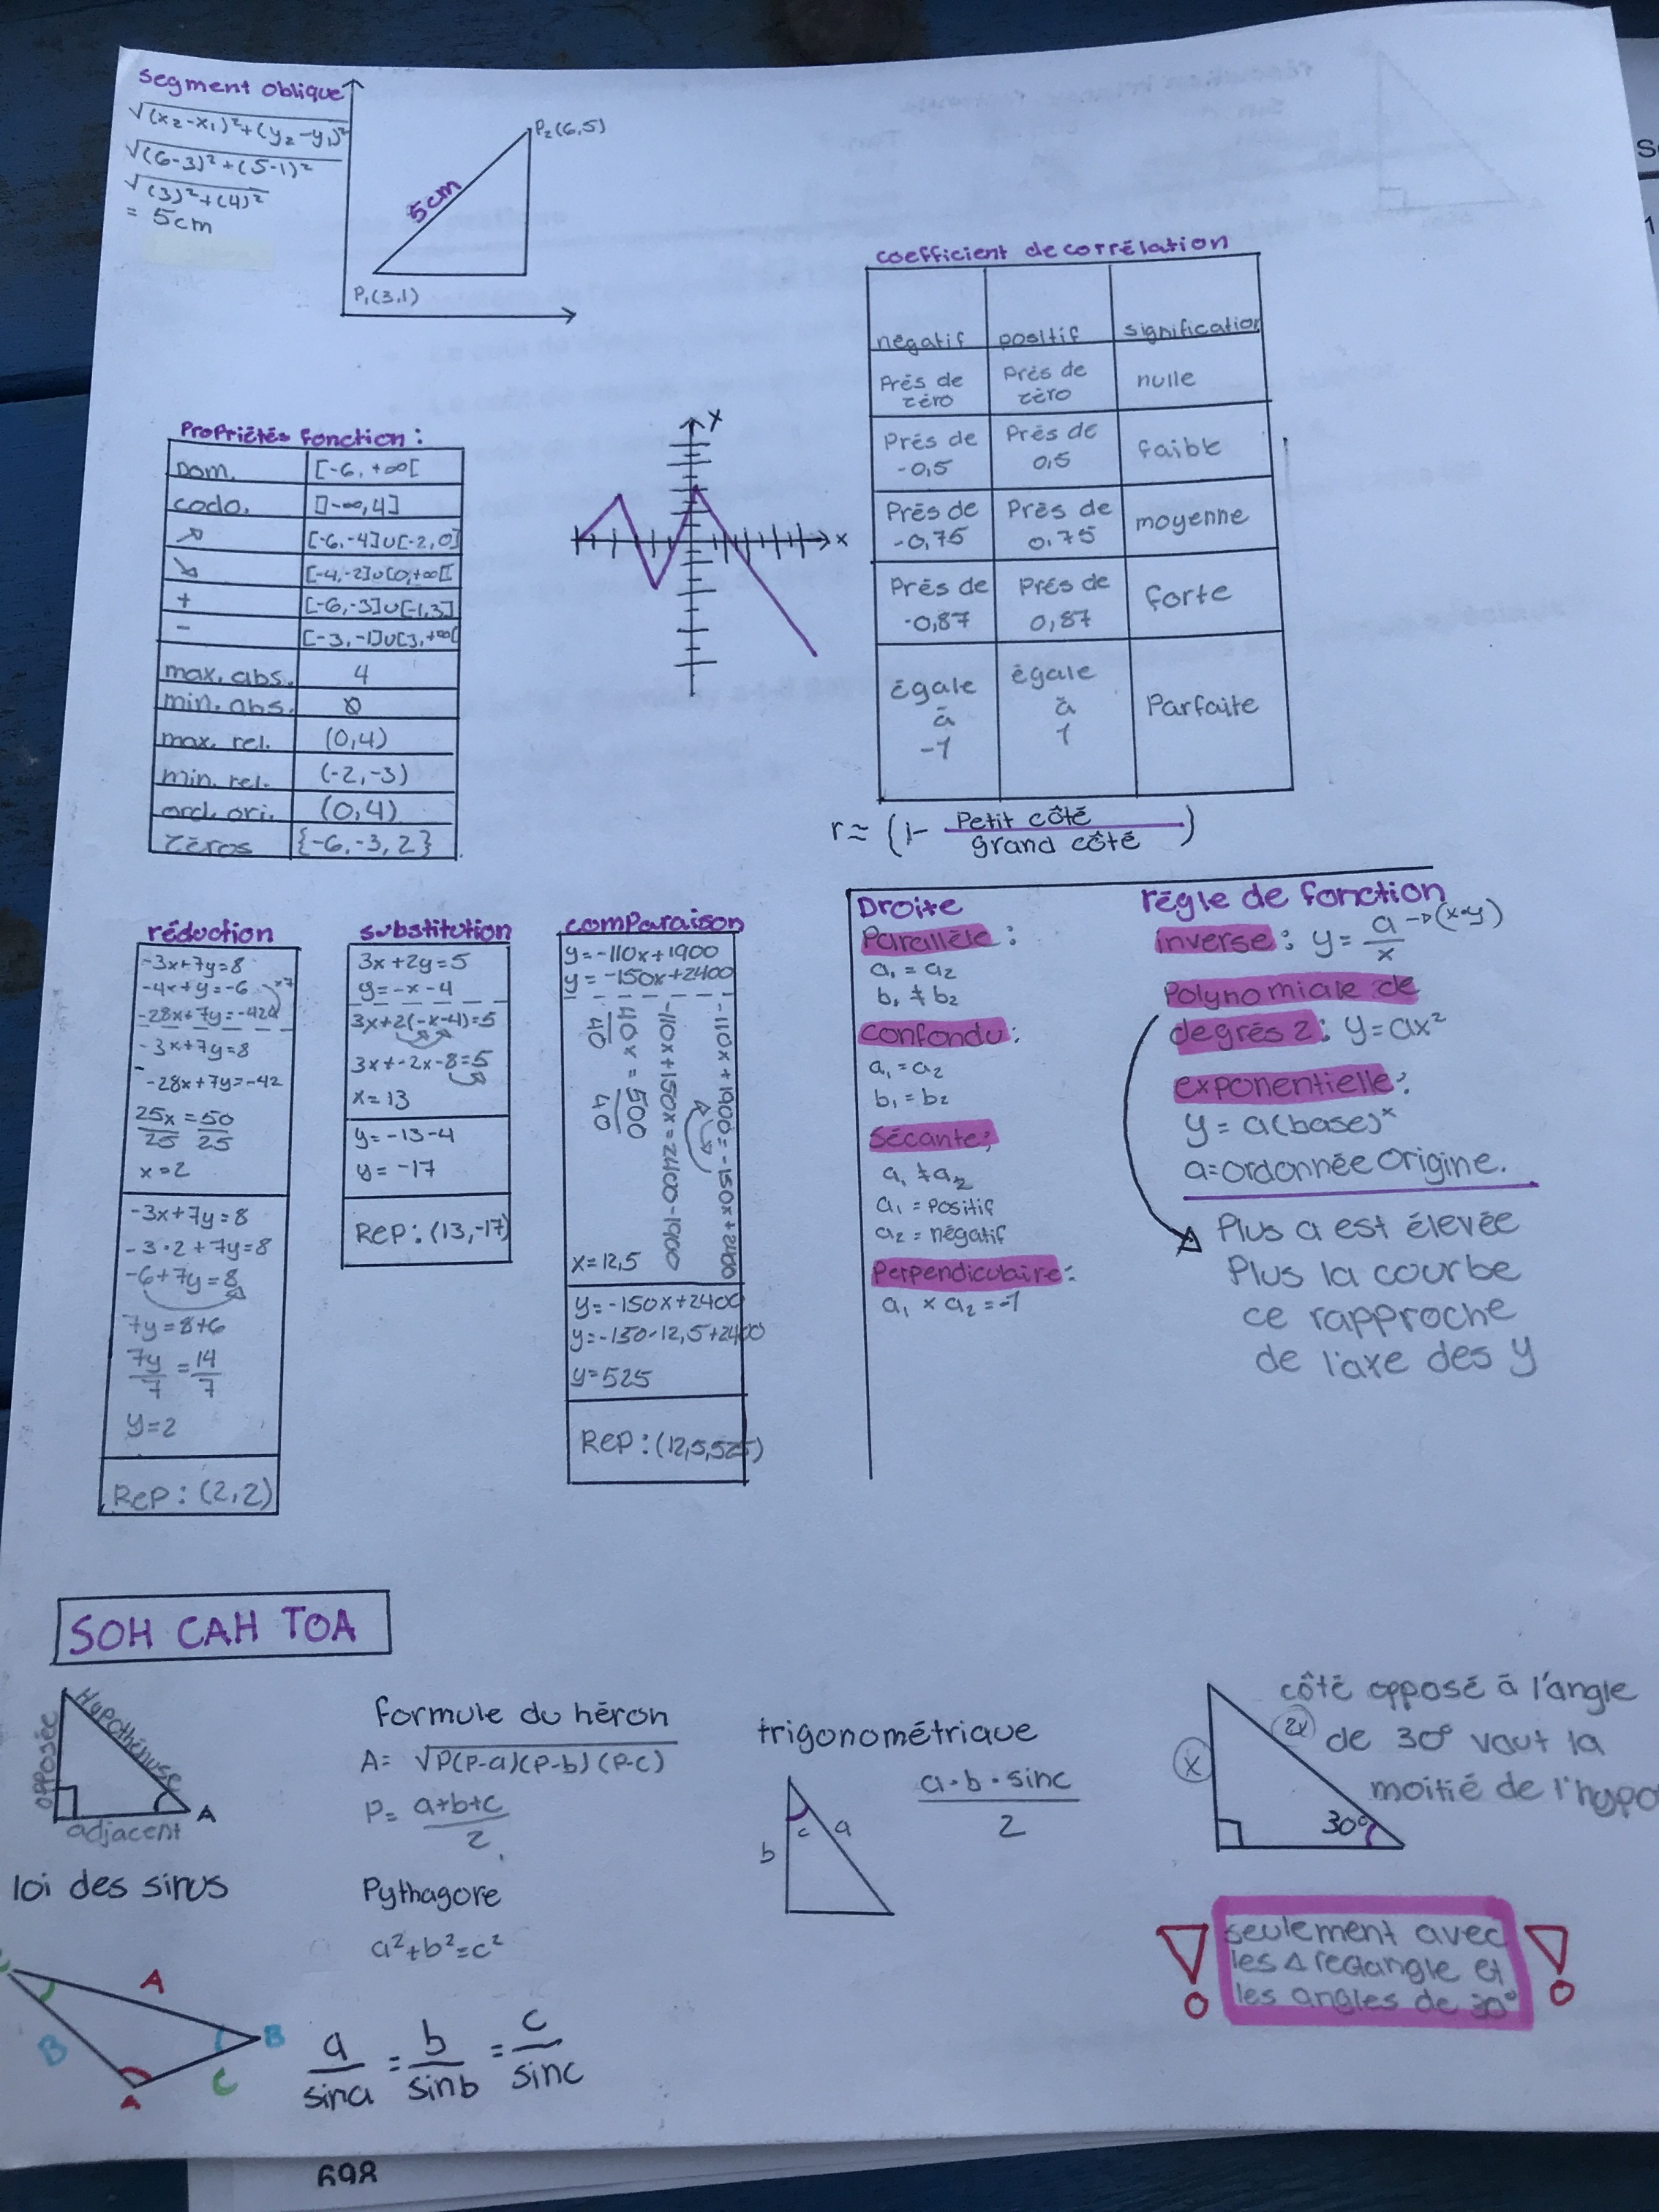 segment oblique
√(x₂-x₁)²+(y₂-y₁)²
√(6-3)²+(5-1)²
√(3)²+(4)²
= 5cm
P₂(6,5)
5cm
P₁(3,1)
coefficient de corrélation
négatif positif signification
Près de zéro Près de zéro nulle
Près de -0,5 Près de 0,5 faible
Près de -0,75 Près de 0.75 moyenne
Près de -0,87 Près de 0,87 forte
égale à -1 égale à 1 Parfaite
r≈ (1- Petit côté / grand côté)
Propriétés fonction:
Dom. [-6,+∞[
codo. ]-∞,4]
↗ [-6,-4]∪[-2,0]
↘ [-4,-2]∪[0,+∞[
+ [-6,-3]∪[-1,3]
- [-3,-1]∪[3,+∞[
max. abs. 4
min. abs. Ø
max. rel. (0,4)
min. rel. (-2,-3)
ord. ori. (0,4)
Zéros {-6,-3,2}
x
x
réduction
-3x+7y=8
-4x+y=-6 x7
-28x+7y=-42
-3x+7y=8
-28x+7y=-42
25x/25 = 50/25
x=2
-3x+7y=8
-3·2+7y=8
-6+7y=8
7y=8+6
7y/7 = 14/7
y=2
Rep: (2,2)
substitution
3x+2y=5
y=-x-4
3x+2(-x-4)=5
3x+-2x-8=5
x=13
y=-13-4
y=-17
Rep: (13,-17)
comparaison
y=-110x+1900
y=-150x+2400
-110x+1900=-150x+2400
-110x+150x=2400-1900
40x/40 = 500/40
x=12,5
y=-150x+2400
y=-150·12,5+2400
y=525
Rep: (12,5,525)
Droite
Parallèle:
a₁=a₂
b₁≠b₂
confondu:
a₁=a₂
b₁=b₂
Sécante:
a₁≠a₂
a₁=positif
a₂=négatif
Perpendiculaire:
a₁ x a₂=-1
règle de fonction
inverse: y= a/x → (x·y)
Polynomiale de
degrés 2: y=ax²
exponentielle:
y= a(base)ˣ
a=ordonnée origine.
Plus a est élevée
Plus la courbe
ce rapproche
de l'axe des y
SOH CAH TOA
opposée
Hypothénuse
adjacent
A
formule du héron
A= √P(P-a)(P-b)(P-c)
P= a+b+c / 2
Pythagore
a²+b²=c²
trigonométrique
a·b·sinc / 2
b
c
a
côté opposé à l'angle
de 30° vaut la
moitié de l'hypo
x
2x
30°
seulement avec
les △ rectangle et
les angles de 30°
loi des sinus
A
B
B
C
A
a/sina = b/sinb = c/sinc
698